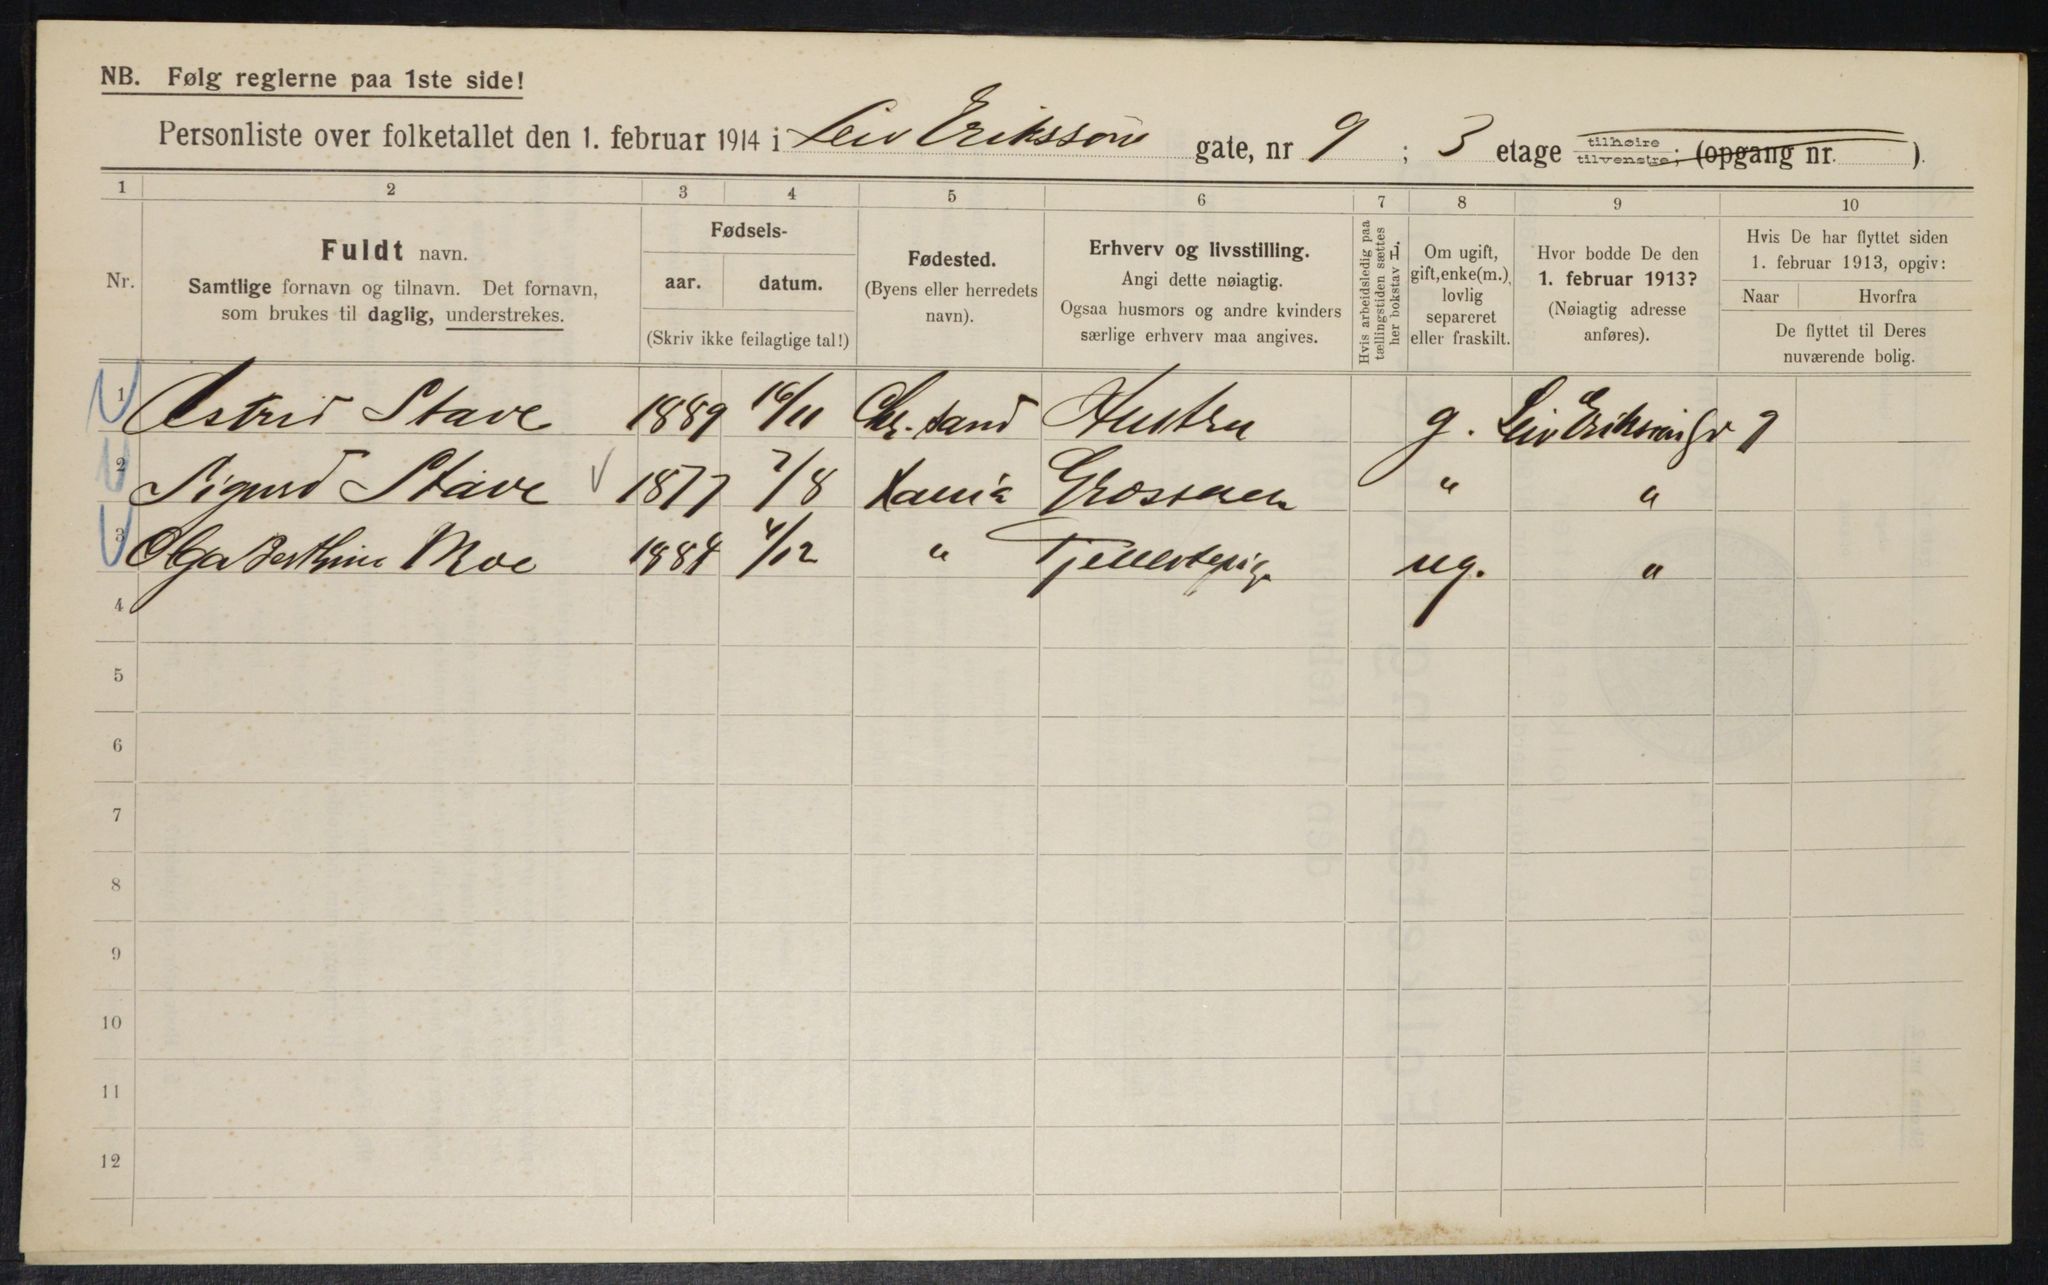 NB. Følg reglerne paa 1ste side!
Personliste over folketallet den 1. februar 1914 i Leiv Erikssøns gate, nr 9 ; 3 etage tilhøire tilvenstre; (opgang nr. ).
1 2 3 4 5 6 7 8 9 10
Nr.
Fuldt navn.
Samtlige fornavn og tilnavn. Det fornavn,
som brukes til daglig, understrekes.
Fødsels-
aar. datum.
(Skriv ikke feilagtige tal!)
Fødested.
(Byens eller herredets
navn).
Erhverv og livsstilling.
Angi dette nøiagtig.
Ogsaa husmors og andre kvinders
særlige erhverv maa angives.
Hvis arbeidsledig paa
tællingstiden sættes
her bokstav L.
Om ugift,
gift, enke(m.),
lovlig
separeret
eller fraskilt.
Hvor bodde De den
1. februar 1913?
(Nøiagtig adresse
anføres).
Hvis De har flyttet siden
1. februar 1913, opgiv:
Naar Hvorfra
De flyttet til Deres
nuværende bolig.
1 Astrid Stave 1889 16/11 Chr.sand Hustru g. Leiv Erikssøns g 9
2 Sigurd Stave 1877 7/8 Xania Grosserer " "
3 Olga Berthine Moe 1884 4/12 " Tjenestepige ug. "
4
5
6
7
8
9
10
11
12